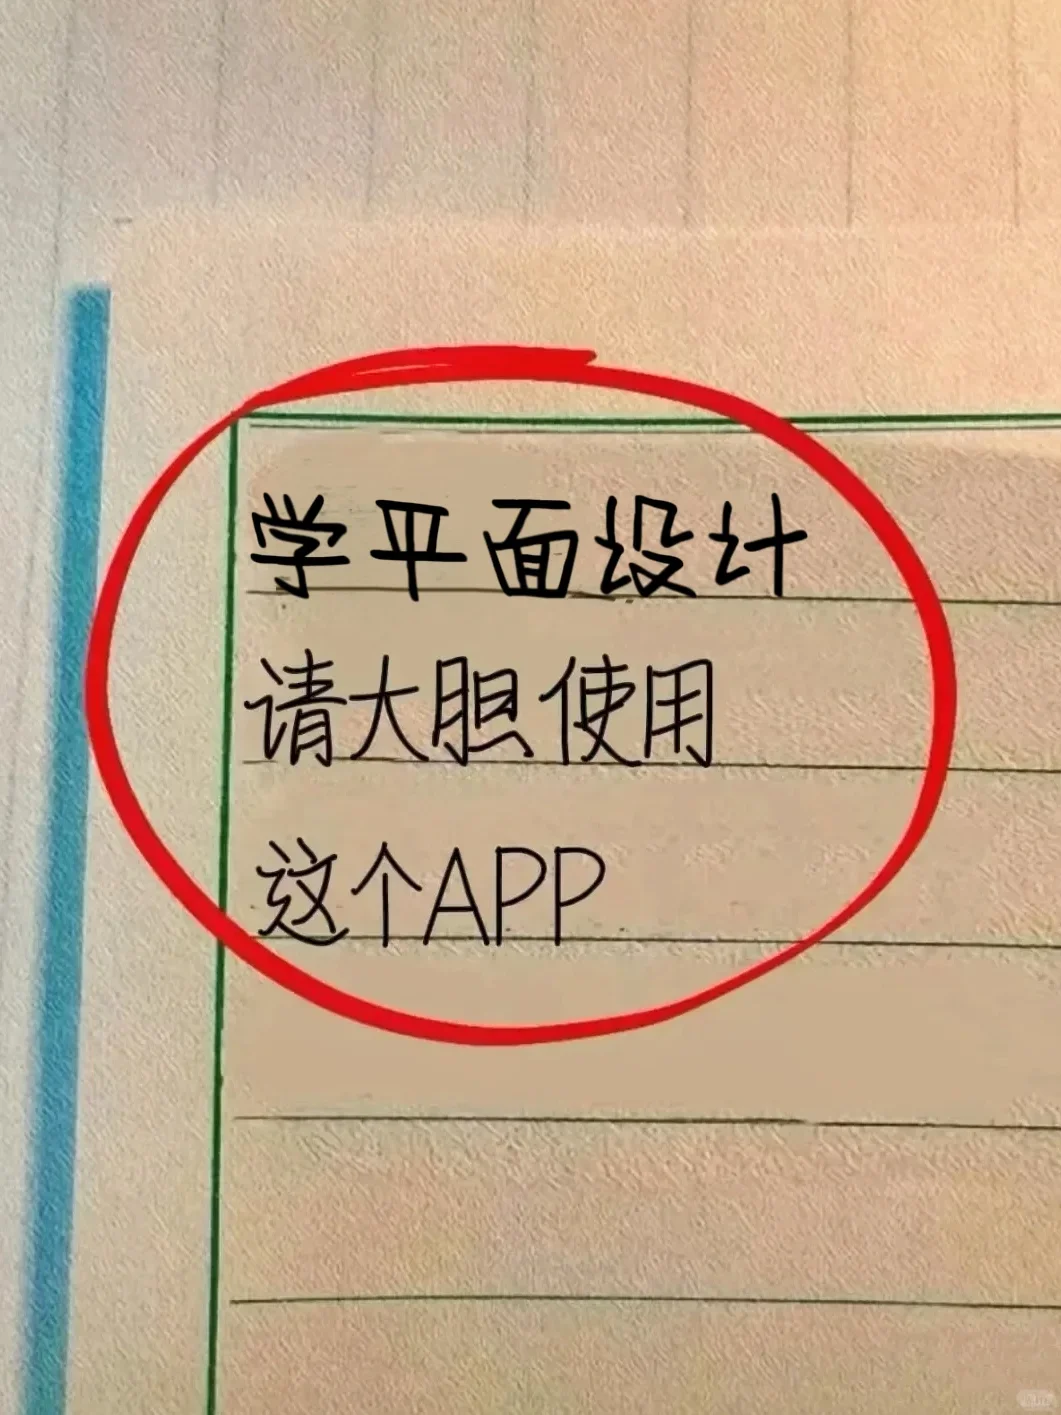 学平面设计
请大胆使用
这个APP